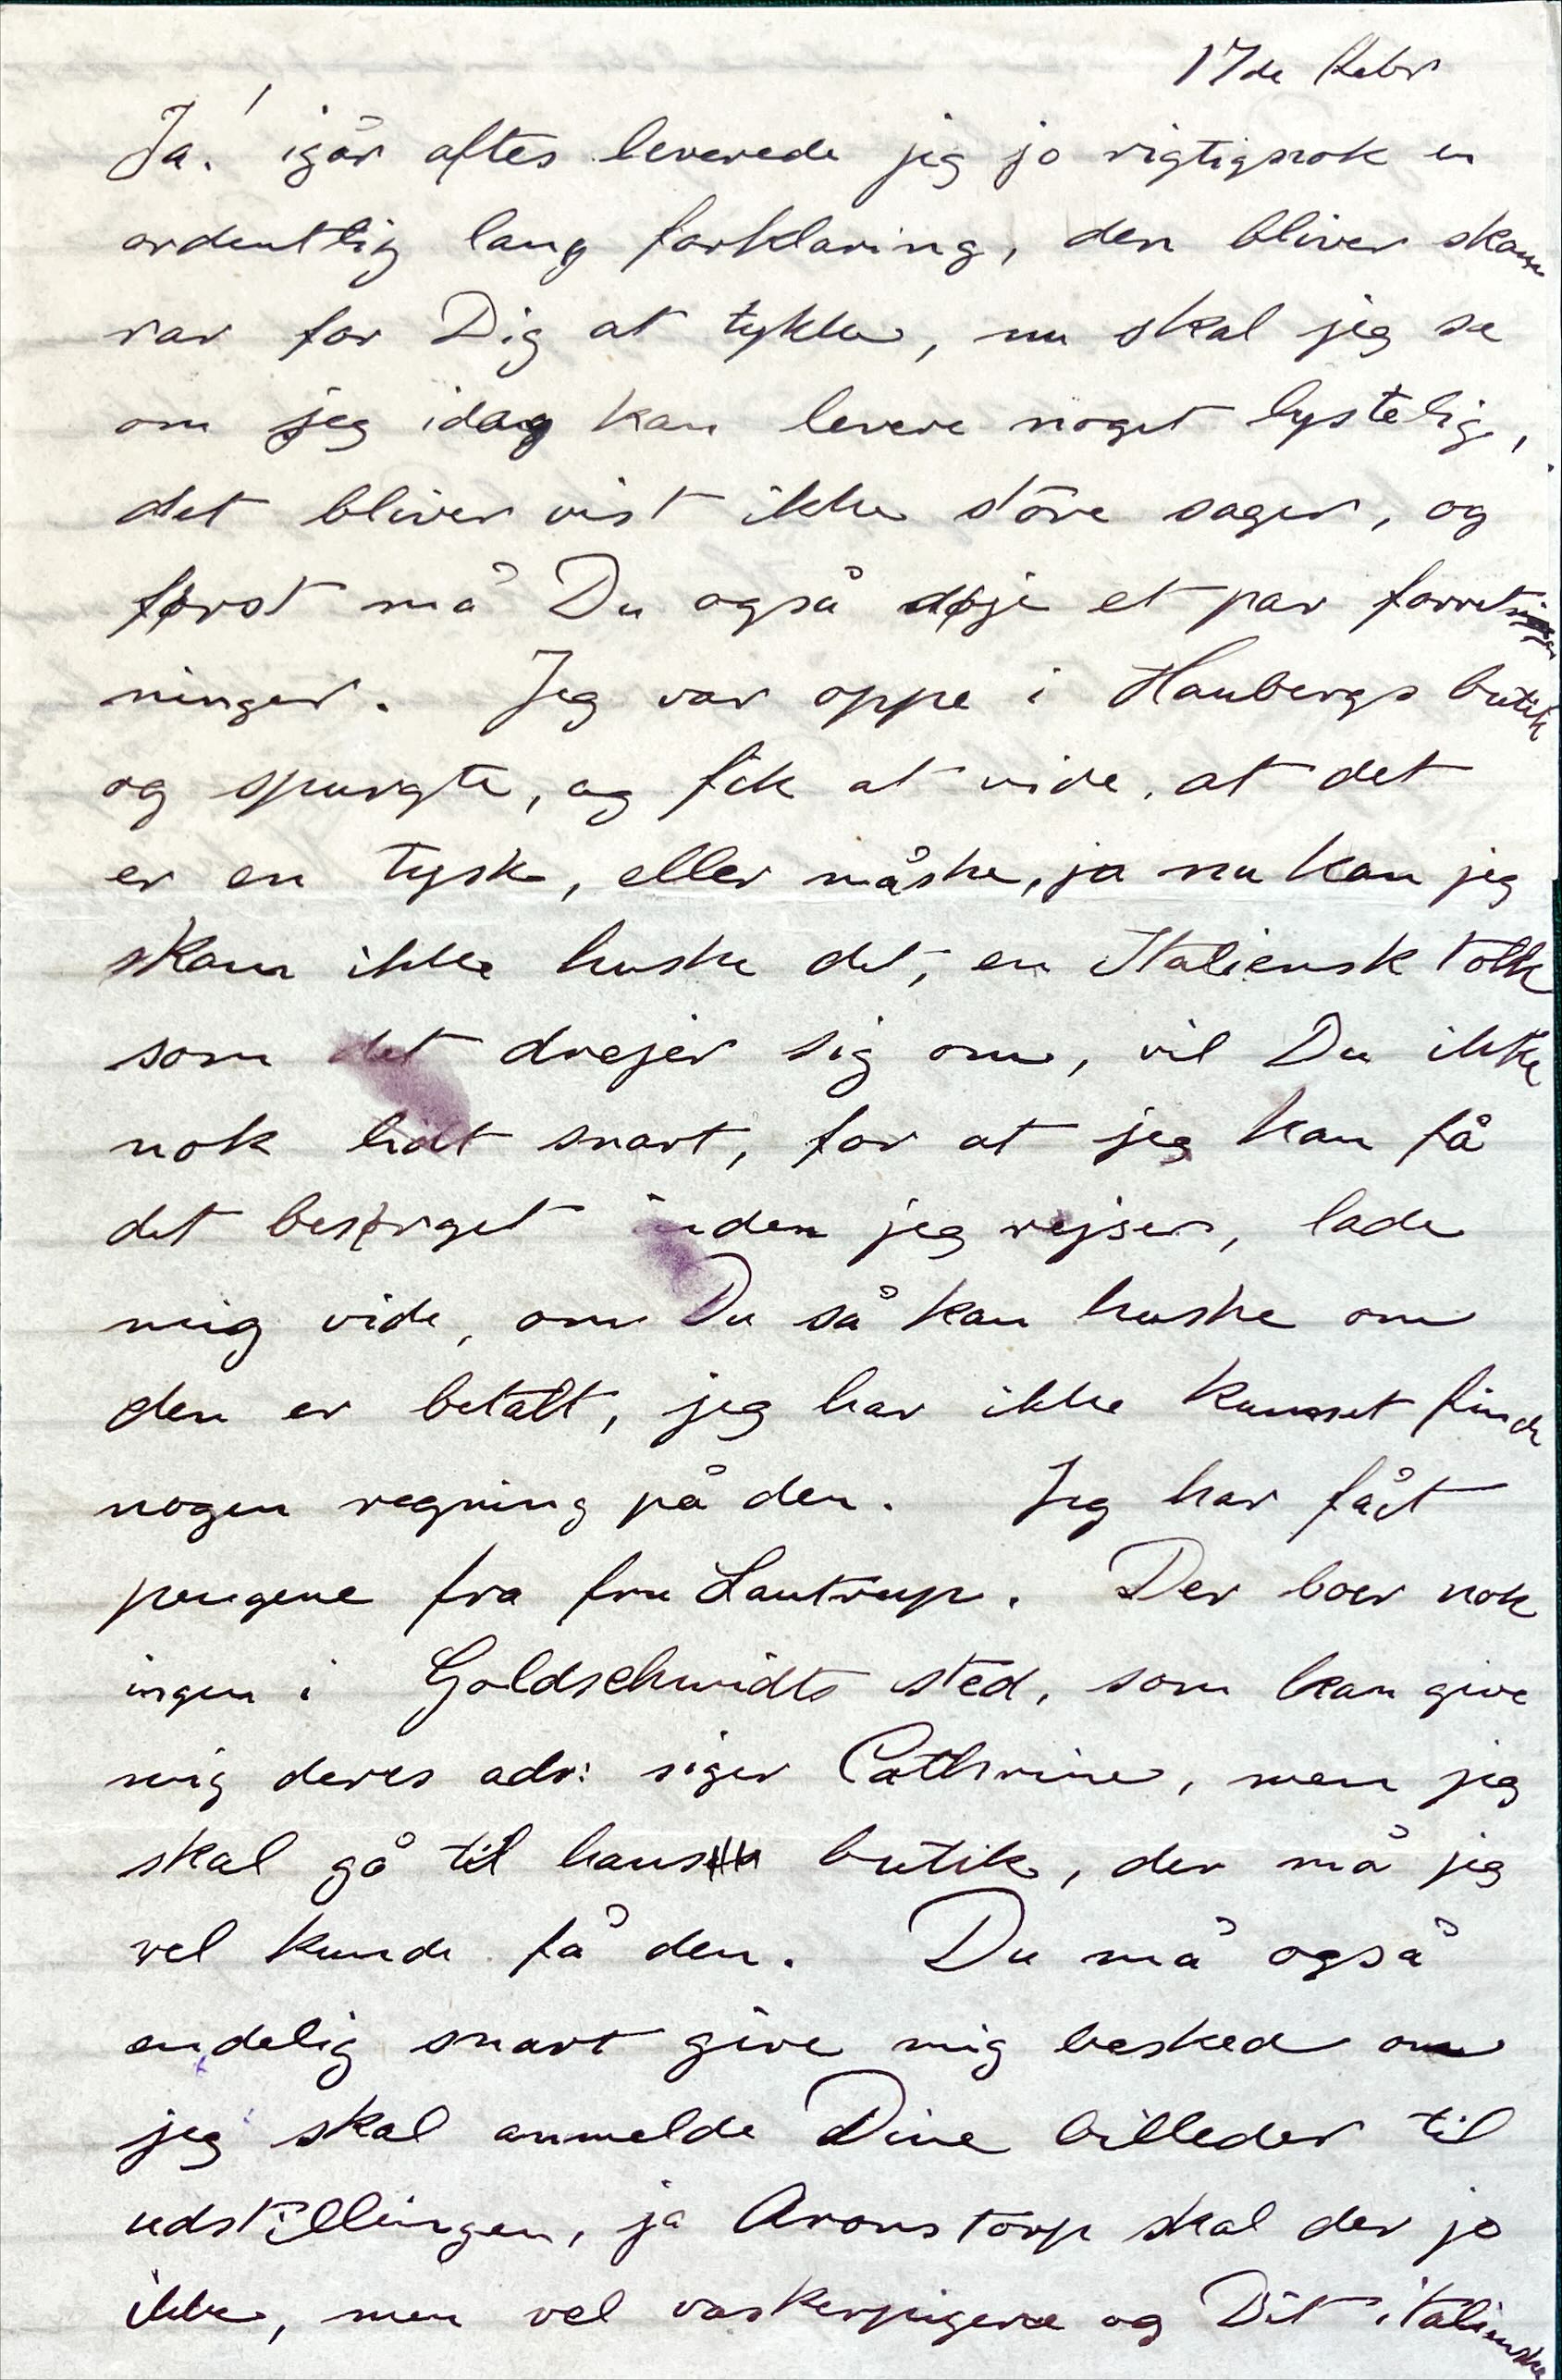 17de Febr
Ja! igår aftes leverede jeg jo rigtignok en
ordentlig lang forklaring, den bliver skam
rar for Dig at tykke, nu skal jeg se
om jeg idag kan levere noget lystelig,
det bliver vist ikke störe sager, og
først må Du også døje et par forret
ninger. Jeg var oppe i Haubergs butik
og spurgte, og fik at vide, at det
er en tysk, eller måske, ja nu kan jeg
skam ikke huske det, en Italiensk tolk
som det drejer sig om, vil Du ikke
nok lidt snart, for at jeg kan få
det besørget inden jeg rejser, lade
mig vide, om Du så kan huske om
den er betalt, jeg har ikke kunnet finde
nogen regning på den. Jeg har fået
pengene fra fru Lautrup. Der boer nok
ingen i Goldschmidts sted, som kan give
mig deres adr: siger Cathrine, men jeg
skal gå til hans butik, der må jeg
vel kunde få den. Du må også
endelig snart give mig besked om
jeg skal anmelde Dine billeder til
udstillingen, ja Aronstorp skal der jo
ikke, men vel vaskerpigerne og Dit italienske